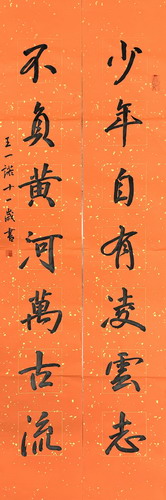 少年自有凌雲志
不負黃河萬古流
王一諾十一歲書